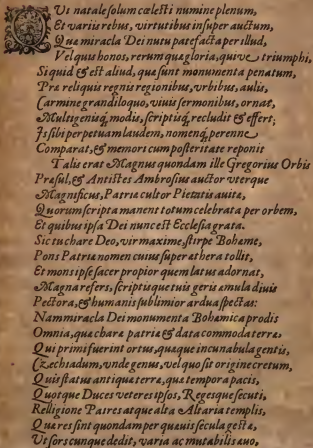 QVt natale solum cœlesti numine plenum,
Et variis rebus, virtutibus insuper auctum,
Quæ miracla Dei nutu patefacta per illud,
Vel quis honos, rerum quæ gloria, quive triumphi,
Si quid & est aliud, quæ sunt monumenta penatum,
Præ reliquis regnis regionibus, vrbibus, aulis,
Carmine grandiloquo, viuis sermonibus, ornat,
Multigenisq; modis, scriptisq; recludit & effert;
Is sibi perpetuam laudem, nomenq; perenne
Comparat, & memori cum posteritate reponit
Talis erat Magnus quondam ille Gregorius Orbis
Præsul, & Antistes Ambrosius auctor vterque
Magnificus, Patriæ cultor Pietatis auitæ,
Quorum scripta manent totum celebrata per orbem,
Et quibus ipsa Dei nunc est Ecclesia grata.
Sic tu chare Deo, vir maxime, stirpe Bohême,
Pons Patriæ nomen cuius super æthera tollit,
Et mons ipse sacer propior quem latus adornat,
Magna refers, scriptisque tuis geris æmula diuis
Pectora, & humanis sublimior ardua spectas:
Nam miracla Dei monumenta Bohœmica prodis
Omnia, quæ charæ patriæ & data commoda terræ,
Qui primi fuerint ortus, quæque incunabula gentis,
Czechiadum, vnde genus, vel quo sit origine cretum,
Quis status antiquæ terræ, quæ tempora pacis,
Quotque Duces veteres ipsos, Regesque secuti,
Relligione Patres atque alta Altaria templis,
Quæ res sint quondam per quæuis sæcula gestæ,
Vt sors cunque dedit, varia ac mutabilis æuo,